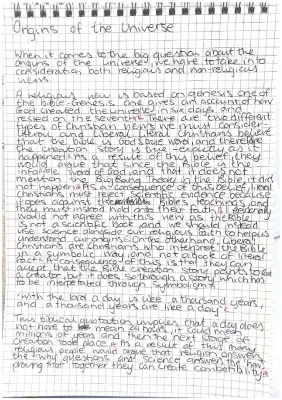 Origins of the Universe
When it comes to the big question about the
origins of the universe, we have to take into
consideration both religious and non-religious
views.
A religious view is based on genesis, one of
the bible. Genesis one gives an account of how
God created the universe in six days and
rested on the seventh. There are two different
types of Christian views we must consider
literal and liberal. Literal Christians believe
that the bible is God's true word, and therefore
the creation story is true exactly as it
happened. As a result of this belief, they
would argue that since the Bible is the
infallible word of God and that it does not
mention the Big Bang Theory in the Bible it did
not happen. As a consequence of this belief, literal
Christians must reject scientific evidence because
it goes against the Bible's teachings and
they must instead hold onto their faith. I personally
would not agree with this view as the bible
is not a scientific book and we should instead
use science alongside our religious faith to help us
understand our origins. On the other hand, liberal
Christians are Christians who interpret the Bible
in a symbolic way and not a book of literal
fact. A consequence of this is that they can
accept that the Bible creation story points to God
as creator, but it does so through a story which has
to be interpreted through symbolism.
"With the lord a day is like a thousand years,
and a thousand years are like a day"
This biblical quotation implies that a day does
not have to mean 24 hours, it could mean
millions of years and then the next stage of
creation took place. As a result of this many
religious people would argue that religion answers
the "why" questions and science answers the "how",
proving that together they can create compatibility.